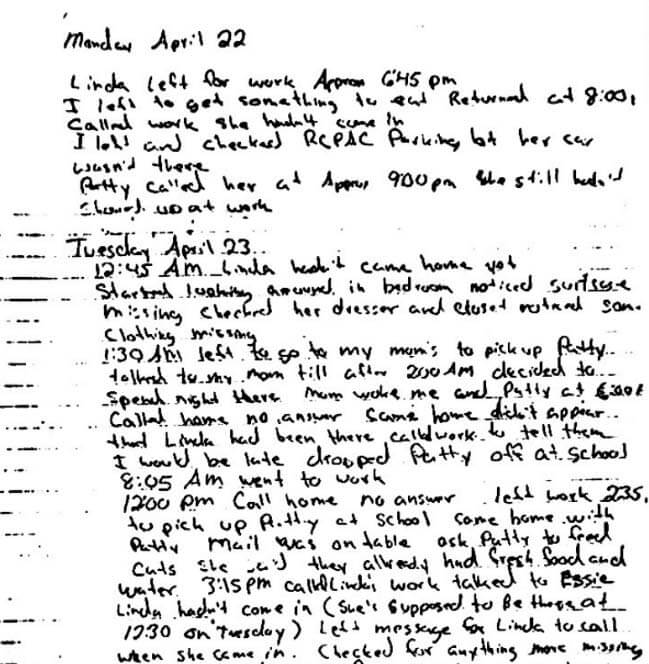 Monday April 22
Linda left for work Approx 6:45 pm
I left to get something to eat Returned at 8:00,
Called work she hadn't come in
I left and checked RCPAC Parking lot her car
wasn't there
Patty called her at Approx 9:00 pm she still hadn't
showed up at work
Tuesday April 23
12:45 AM Linda hadn't came home yet
Started looking around in bedroom noticed suitcase
missing checked her dresser and closet noticed som-
clothing missing
1:30 AM left to go to my mom's to pick up Patty
talked to my mom till after 2:00 AM decided to
spend night there Mom woke me and Patty at
Called home no answer Came home didn't appear
that Linda had been there called work to tell them
I would be late dropped Patty off at school
8:05 AM went to work
12:00 pm Call home no answer left work 2:35,
to pick up Patty at School came home with
Patty Mail was on table ask Patty to feed
Cats she said they allready had fresh food and
water 3:15 pm called Linda's work talked to Essie
Linda hadn't come in (She's supposed to Be there at
12:30 on Tuesday) Left message for Linda to call
when she came in. Checked for anything more missing